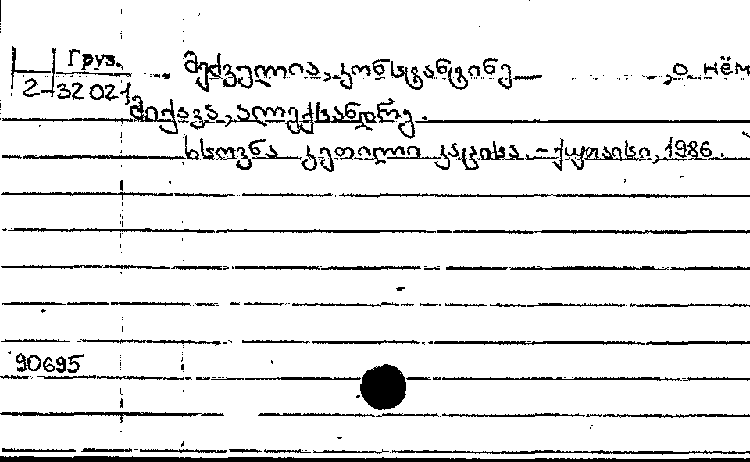 Груз.
2-32021
მექვულია, კონსტანტინე , о нём
მიქავა, ალექსანდრე.
ხსოვნა კეთილი კაცისა. – ქუთაისი, 1986.
90695